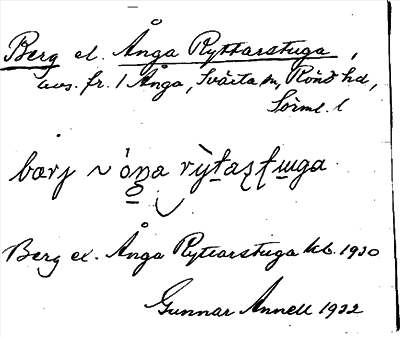 Berg el. Ånga Ryttarstuga,
avs. fr. 1 Ånga, Svärta sn, Rönö hd,
Sörml. l
Berg el. Ånga Ryttarstuga kb. 1930
Gunnar Annell 1932